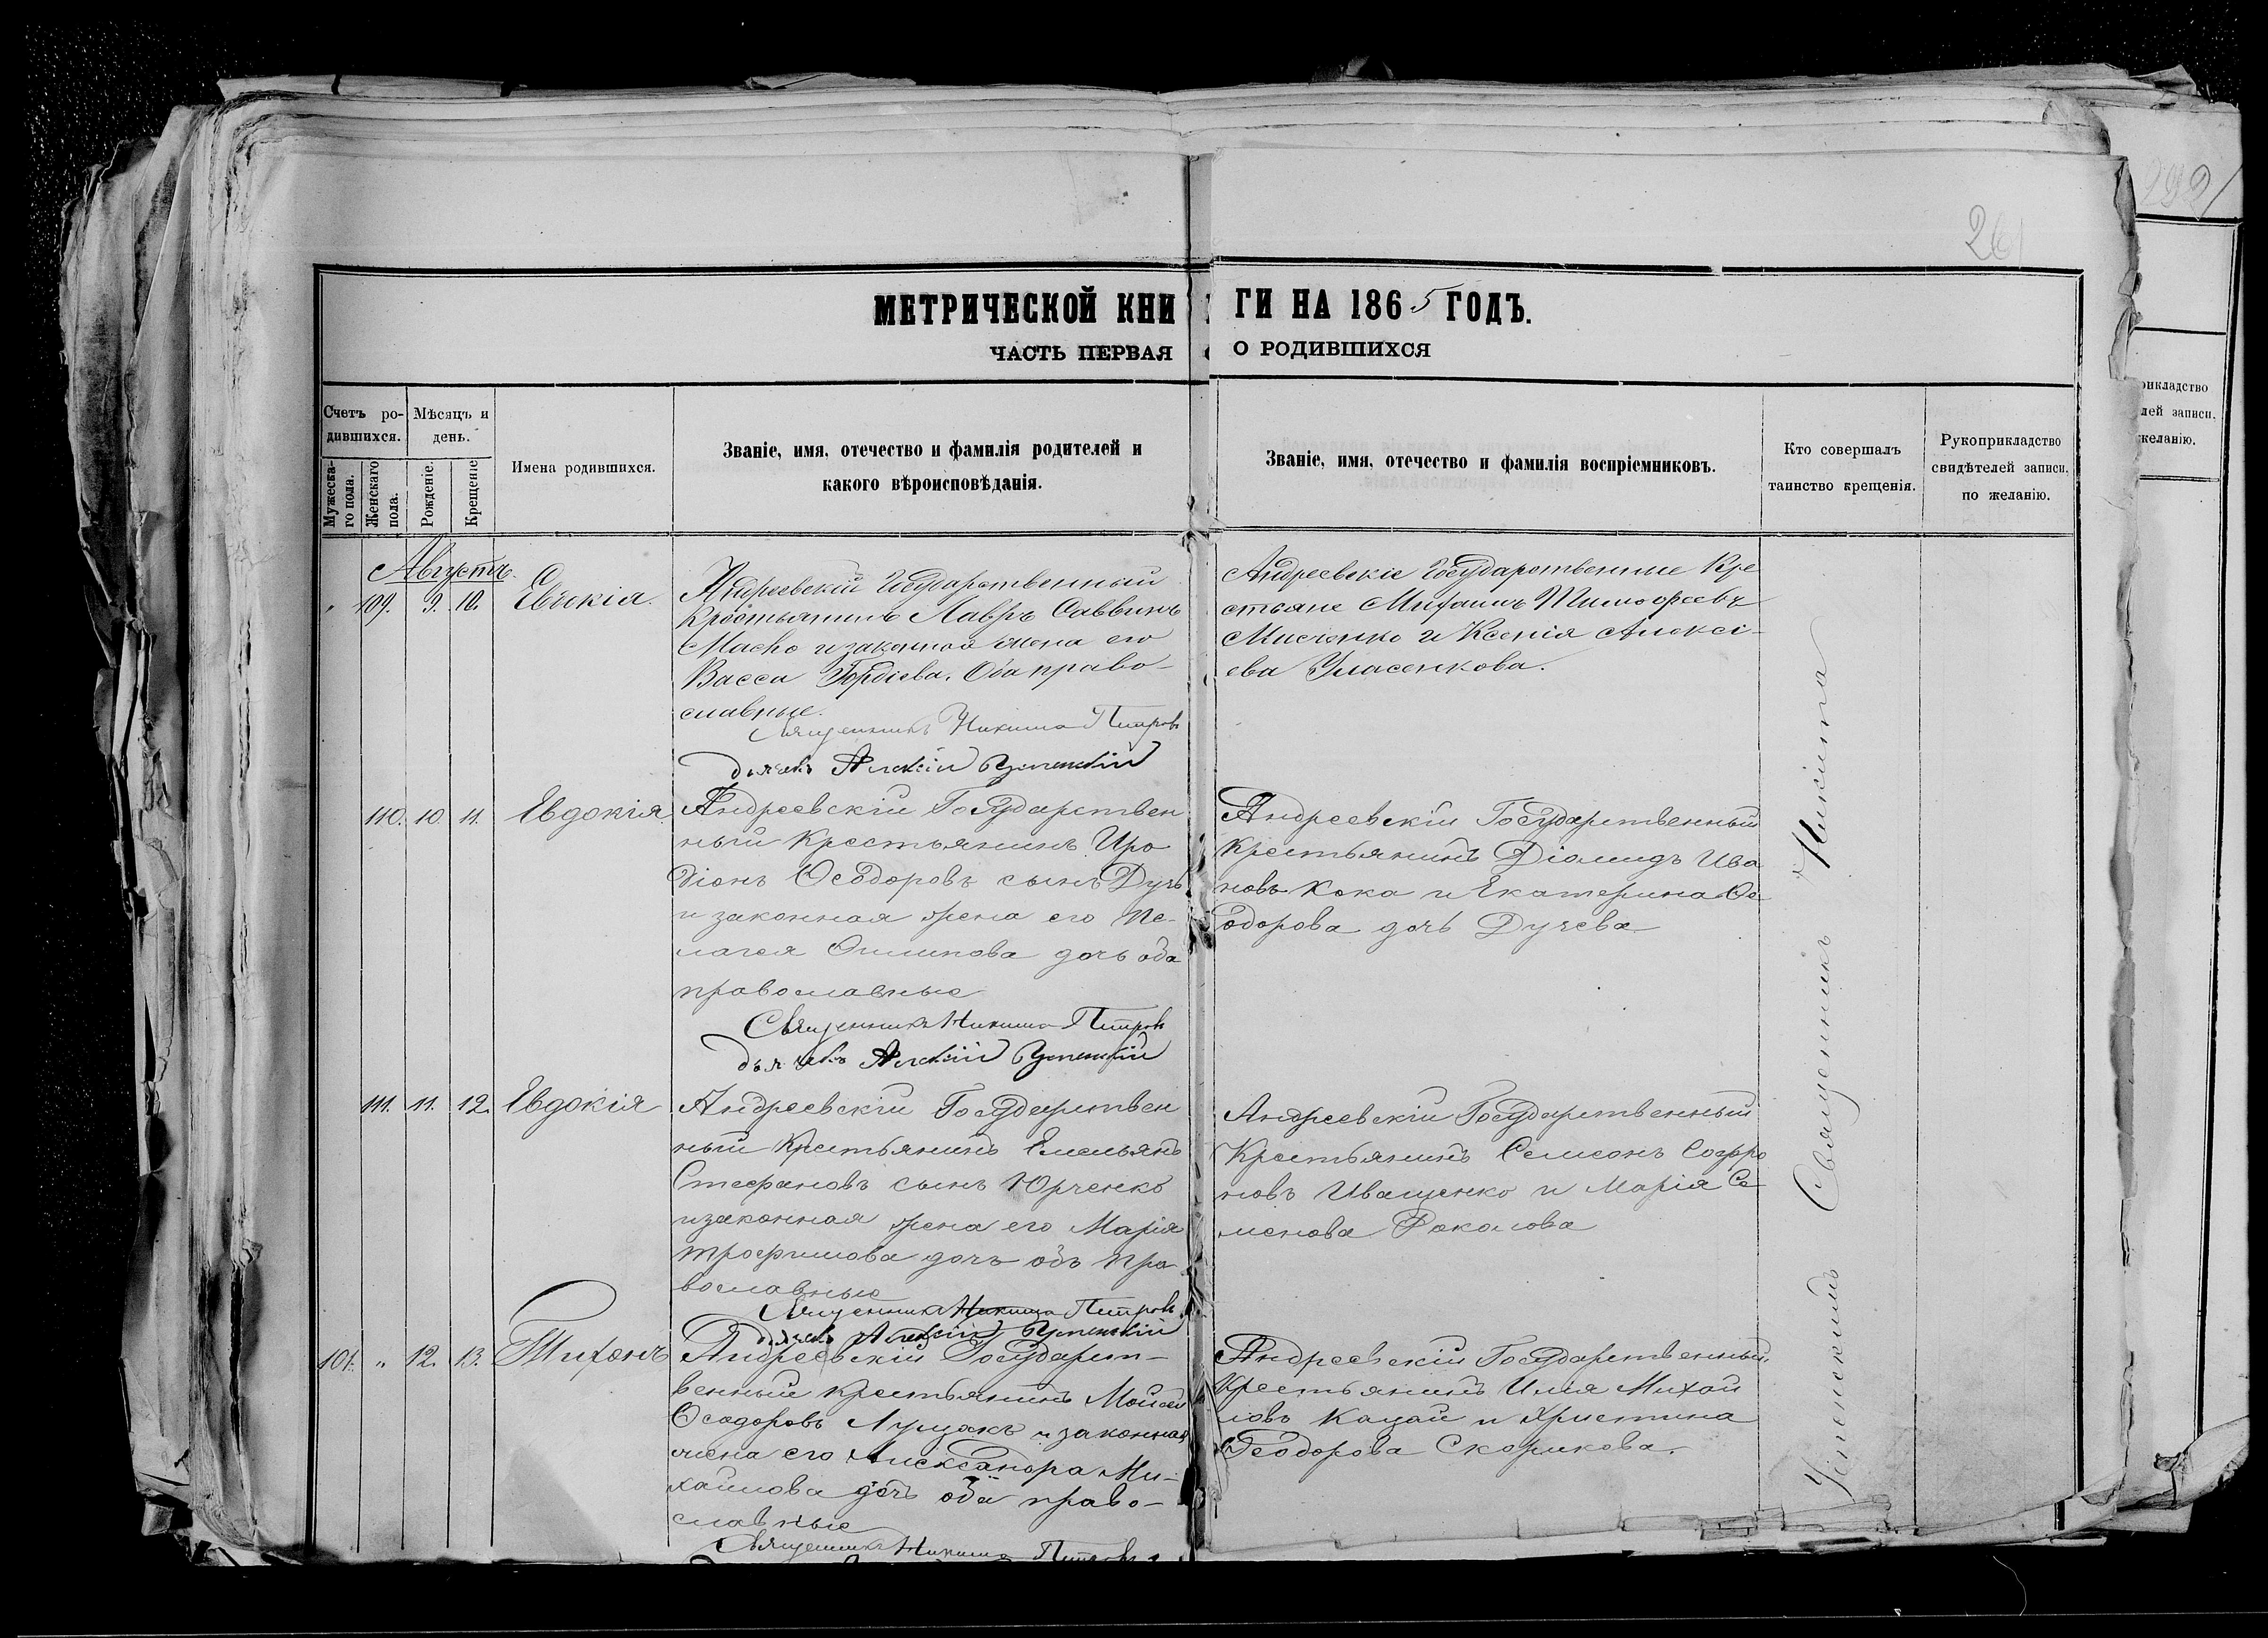 292
261
МЕТРИЧЕСКОЙ КНИГИ НА 1865 ГОДЪ.
ЧАСТЬ ПЕРВАЯ О РОДИВШИХСЯ
Счетъ родившихся.
Мужескаго пола.
Женскаго пола.
Мѣсяцъ и день.
Рожденіе.
Крещеніе
Имена родившихся.
Званіе, имя, отечество и фамилія родителей и
какого вѣроисповѣданія.
Званіе, имя, отечество и фамилія воспріемниковъ.
Кто совершалъ
таинство крещенія.
Рукоприкладство
свидѣтелей записи,
по желанію.
Августъ.
" 109. 9. 10.
Андреевскій Государственный
Крестьянинъ Лавръ Саввинъ
и законная жена его
Васса Гордіева. Оба право-
славные.
Священникъ Никита Петровъ
дьячекъ Алексій Успенскій
Андреевскіе Государственные Кре
стьяне Михаилъ Тимофеевъ
и Ксенія Алексі-
ева Уласенкова.
110. 10. 11. Евдокія.
Андреевскій Государствен
ный Крестьянинъ Иро
діонъ Ѳеодоровъ сынъ Дучь
и законная жена его Пе-
лагея Филипова дочь оба
православные
Священникъ Никита Петровъ
дьячекъ Алексій Успенскій
Андреевскій Государственный
крестьянинъ Діомидъ Ива
новъ Кока и Екатерина Ѳе-
одорова дочь Дучева
111. 11. 12. Евдокія
Андреевскій Государствен
ный Крестьянинъ Емельянъ
Стефановъ сынъ Юрченко
и законная жена его Марія
Трофимова дочь обѣ пра
вославные
Священникъ Никита Петровъ
дьячекъ Алексій Успенскій
Андреевскій Государственный
Крестьянинъ Семеонъ Софро
новъ Иващенко и Марія Се
менова
101. " 12. 13. Тихонъ
Андреевскій Государст-
венный крестьянинъ Мойсей
Ѳеодоровъ Луцакъ и законная
жена его Александра Ми-
хайлова дочь оба право-
славные
Священникъ Никита Петровъ
Андреевскій Государственный
Крестьянинъ Илія Михай
ловъ Кацай и Христина
Ѳеодорова Скорикова.
Священникъ Никита
Успенскій